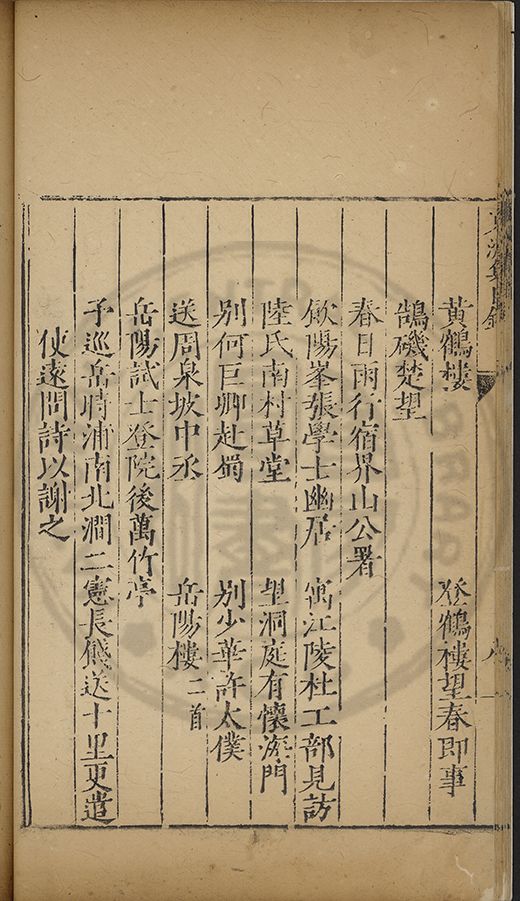 黃鶴樓 登鶴樓望春即事
鵠磯楚望
春日雨行宿界山公署
歙陽峯張學士幽居 寓江陵杜工部見訪
陸氏南村草堂 望洞庭有懷海門
別何巨卿赴蜀 別少華許太僕
送周泉坡中丞 岳陽樓二首
岳陽試士登院後萬竹亭
予巡岳時浦南北澗二憲長餞送十里更遣
使遠問詩以謝之